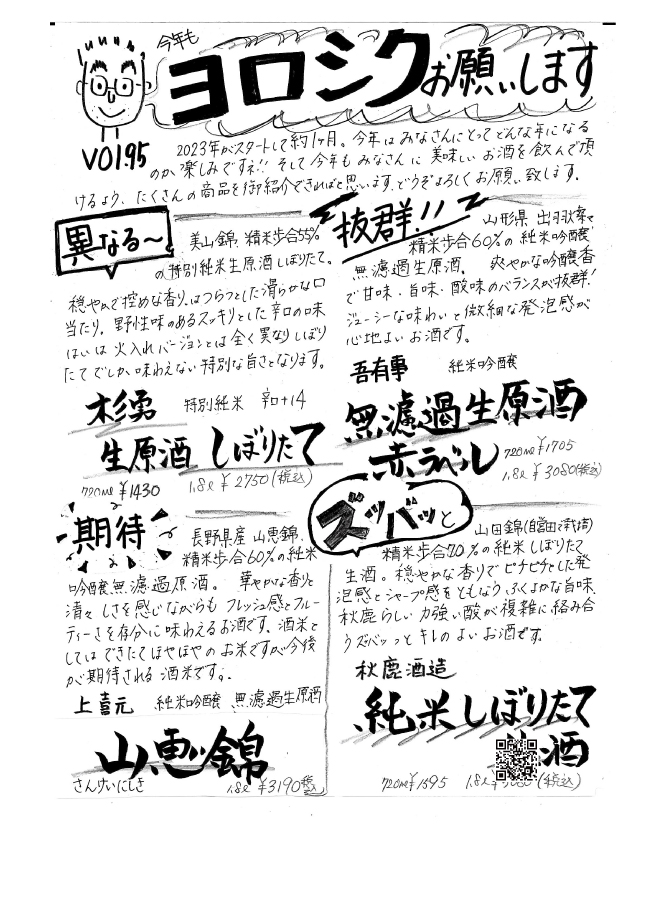 今年も
ヨロシクお願いします
VOl.95
2023年がスタートして約1ヶ月。今年はみなさんにとってどんな年になる
のか楽しみですネ!!そして今年もみなさんに美味しいお酒を飲んで頂
けるよう、たくさんの商品を御紹介できればと思います。どうぞよろしくお願い致します。
異なる〜
美山錦 精米歩合55%
の特別純米生原酒しぼりたて。
穏やかで控めな香り。はつらつとした滑らかな口
当たり。野性味のあるスッキリとした辛口の味
はいは火入れバージョンとは全く異なりしぼり
たてでしか味わえない特別な旨さとなります。
杉勇 特別純米 辛口+14
生原酒 しぼりたて
720ml ¥1430 1.8ℓ ¥2750(税込)
抜群!!
山形県 出羽燦々
精米歩合60%の純米吟醸
無濾過生原酒。 爽やかな吟醸香
で甘味・旨味・酸味のバランスが抜群!
ジューシーな味わいと微細な発泡感が
心地よいお酒です。
吾有事 純米吟醸
無濾過生原酒
赤ラベル
720ml ¥1705
1.8ℓ ¥3080(税込)
期待
長野県産 山恵錦。
精米歩合60%の純米
吟醸無濾過原酒。 華やかな香りと
清々しさを感じながらもフレッシュ感とフルー
ティーさを存分に味わえるお酒です。酒米と
してはできたてほやほやのお米ですが今後
が期待される酒米です。
上喜元 純米吟醸 無濾過生原酒
山恵錦
さんけいにしき 1.8ℓ ¥3190税込
ズッバッと
山田錦
精米歩合70%の純米しぼりたて
生酒。穏やかな香りでピチピチとした発
泡感とシャープ感をともなうふくよかな旨味。
秋鹿らしい力強い酸が複雑に絡み合
うズバッっとキレのよいお酒です。
秋鹿酒造
純米しぼりたて
酒
720ml ¥1595 1.8ℓ (税込)